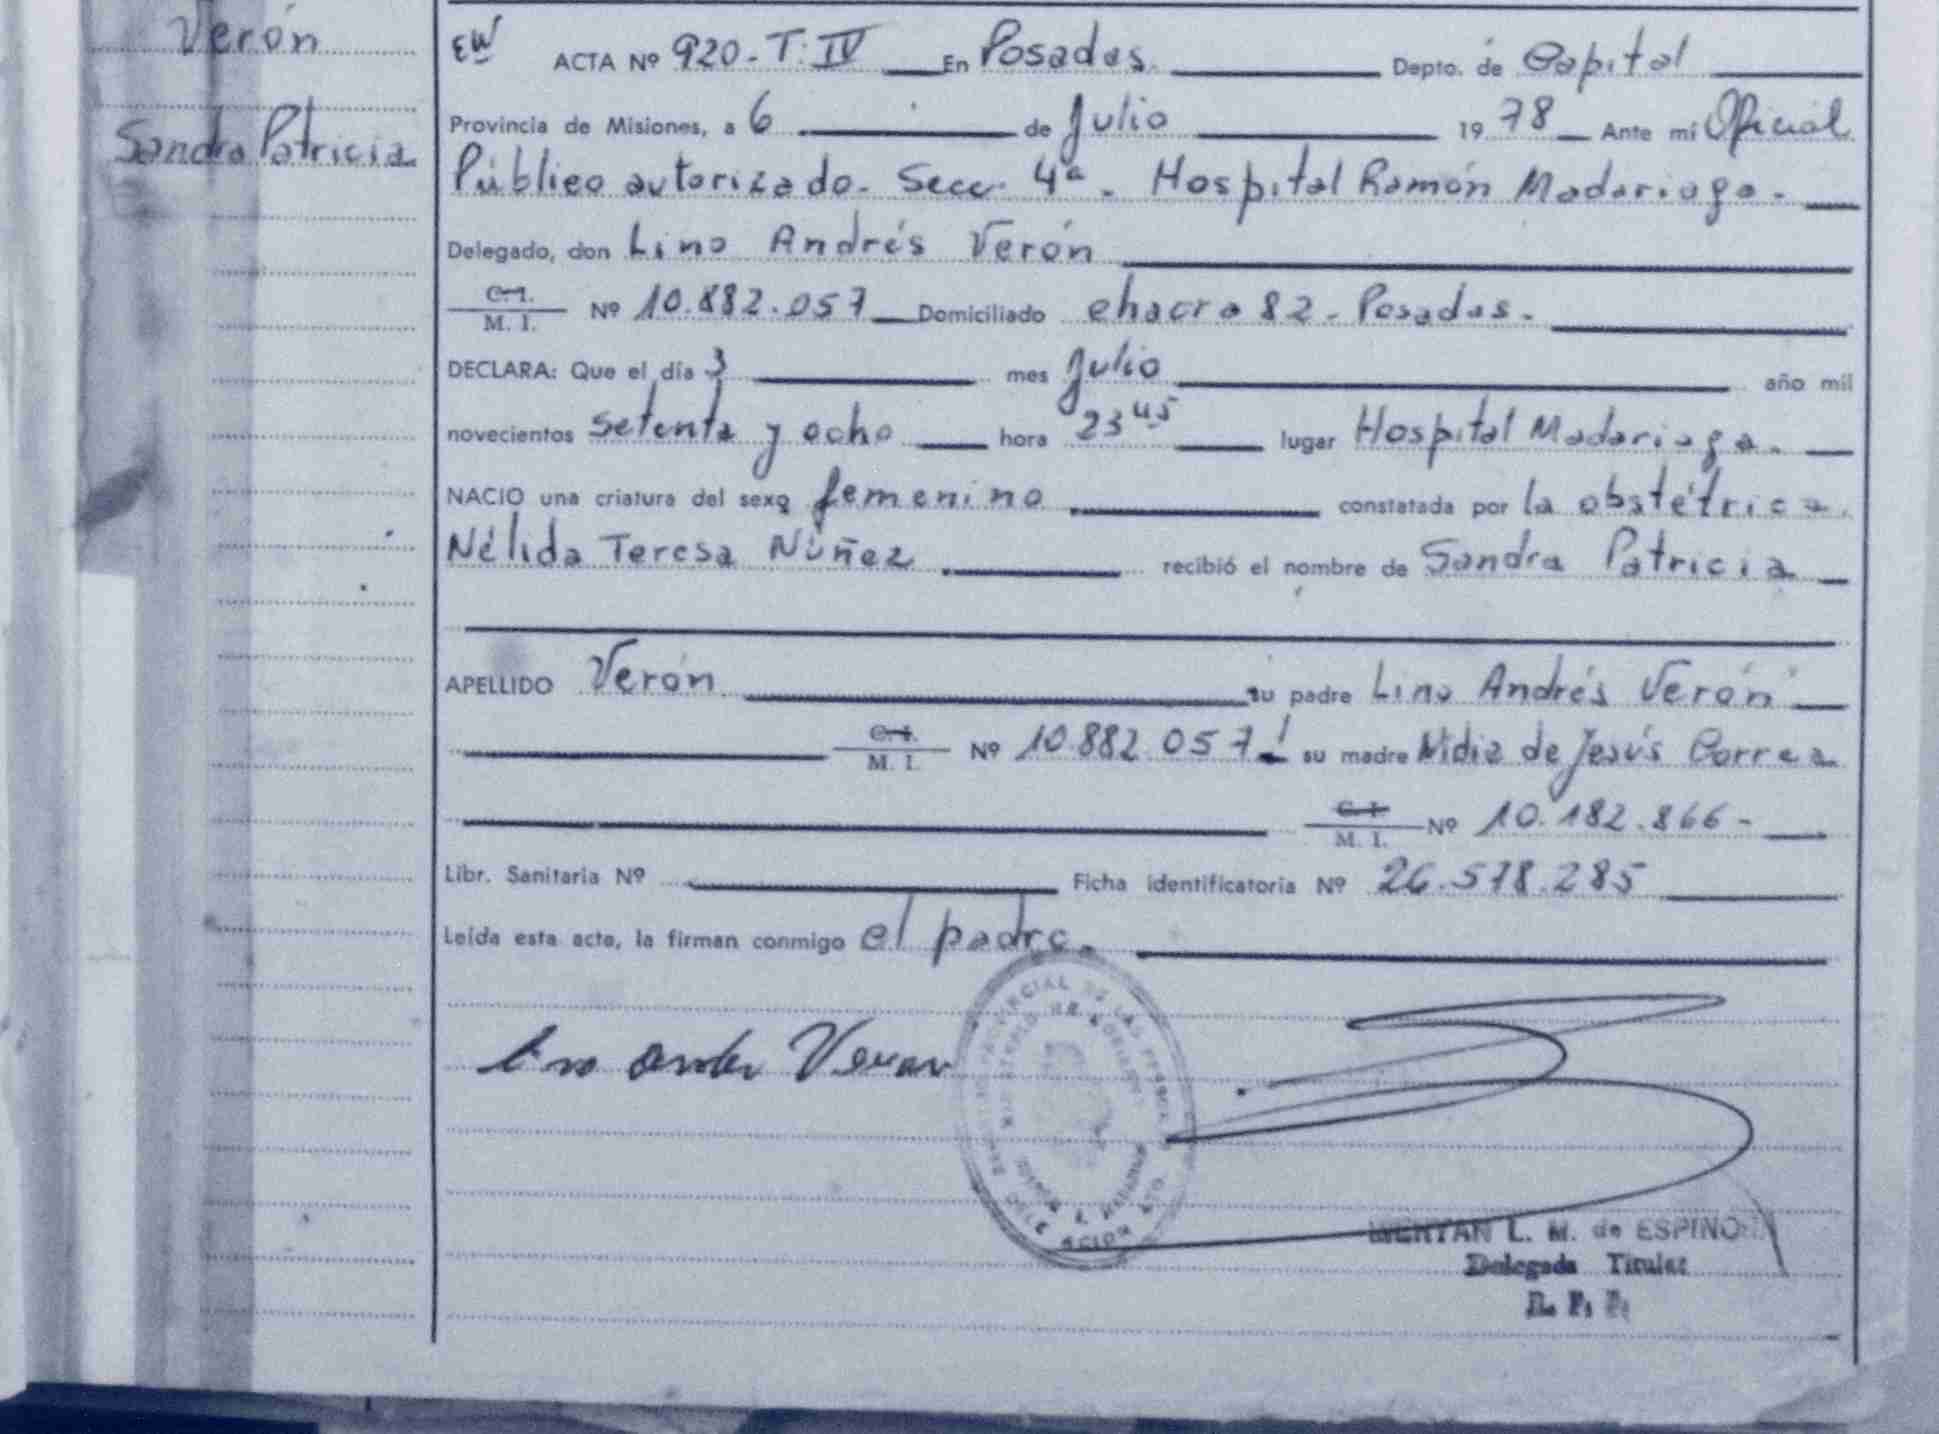 Verón
Sandra Patricia
EW ACTA Nº 920 - T: IV En Posadas. Depto. de Capital
Provincia de Misiones, a 6 de Julio 1978 Ante mí Oficial
Público autorizado. Secc. 4ª. Hospital Ramón Madariaga.
Delegado, don Lino Andrés Verón
C.I. / M. I. Nº 10.882.057 Domiciliado chacra 82 - Posadas.
DECLARA: Que el día 3 mes Julio año mil
novecientos setenta y ocho hora 23 45 lugar Hospital Madariaga.
NACIO una criatura del sexo femenino constatada por la obstétrica
Nélida Teresa Núñez recibió el nombre de Sandra Patricia
APELLIDO Verón su padre Lino Andrés Verón
C.I. / M. I. Nº 10.882.057 su madre Nidia de Jesús Correa
C.I. / M. I. Nº 10.182.866 -
Libr. Sanitaria Nº Ficha identificatoria Nº 26.578.285
Leída esta acta, la firman conmigo el padre.
Lino Andrés Verón
L. M. de ESPINOZA
Delegada Titular